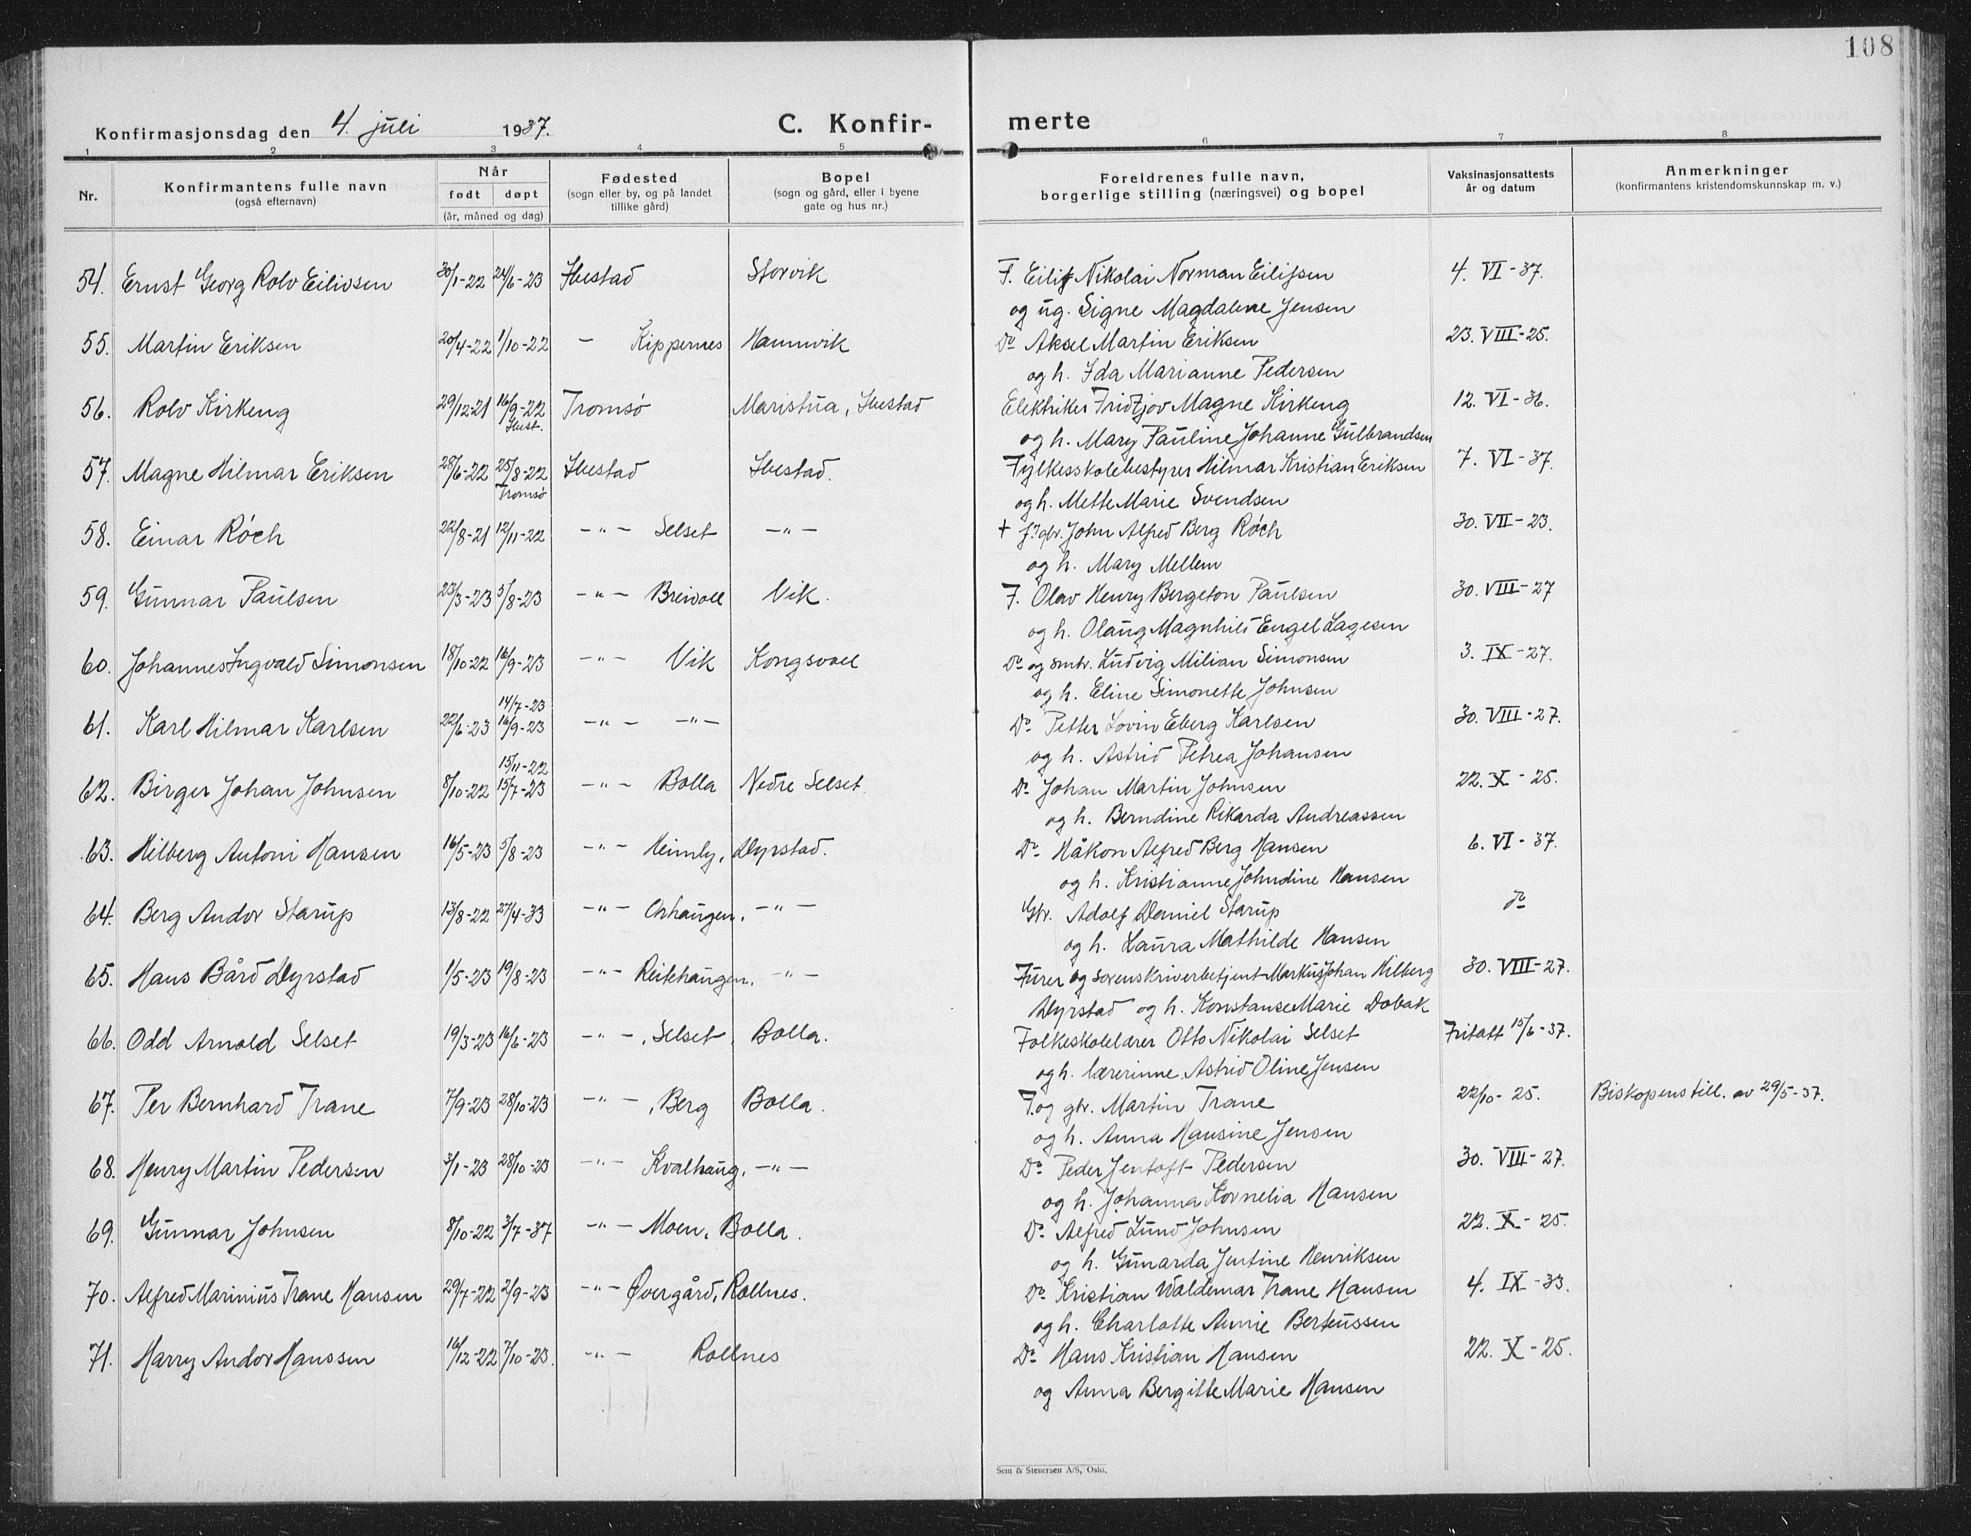 108
Konfirmasjonsdag den 4. juli 1937. C. Konfir- merte
1 2 3 4 5 6 7 8
Nr. Konfirmantens fulle navn (også efternavn) Når født døpt (år, måned og dag) Fødested (sogn eller by, og på landet tillike gård) Bopel (sogn og gård, eller i byene gate og hus nr.) Foreldrenes fulle navn, borgerlige stilling (næringsvei) og bopel Vaksinasjonsattests år og datum Anmerkninger (konfirmantens kristendomskunnskap m. v.)
54. Ernst Georg Rolv Eilivsen 30/1-22 24/6-23 Ibestad Storvik F. Eilif Nikolai Norman Eilifsen 4. VI-37.
og ug. Signe Magdalene Jensen
55. Martin Eriksen 20/4-22 1/10-22 - Kippernes Hamnvik Do Aksel Martin Eriksen 23. VIII-25.
og h. Ida Marianne Pedersen
56. Rolv Kirkeng 29/12-21 16/9-22 Tromsø Maristua, Ibestad Elektriker Fridtjov Magne Kirkeng 12. VI-36.
og h. Mary Pauline Johanne Gulbrandsen
57. Magne Hilmar Eriksen 28/6-22 25/8-22 Tromsø Ibestad Ibestad. Fylkesskolebestyrer Hilmar Kristian Eriksen 7. VI-37.
og h. Mette Marie Svendsen
58. Einar Róch 22/8-21 12/11-22 -"- Selset -"- + f. gbr. John Alfred Berg Róch 30. VII-23.
og h. Mary Mellem
59. Gunnar Paulsen 23/3-23 5/8-23 -"- Breivoll Vik. F. Olav Henry Bergeton Paulsen 30. VIII-27
og h. Olaug Magnhild Engel Lagesen
60. Johannes Ingvald Simonsen 18/10-22 16/9-23 -"- Vik Kongsvoll Do og smbr. Ludvig Milian Simonsen 3. IX-27.
og h. Eline Simonette Johnsen
14/7-23
61. Karl Hilmar Karlsen 22/6-23 16/9-23 -"- -"- Do Petter Lovin Eberg Karlsen 30. VIII-27.
og h. Astrid Petrea Johansen
15/11-22
62. Birger Johan Johnsen 8/10-22 15/7-23 -"- Bolla Nedre Selset. Do Johan Martin Johnsen 22. X-25.
og h. Berndine Rikarda Andreassen
63. Hilberg Antoni Hansen 16/5-23 5/8-23 -"- Heimly, Dyrstad. Do Håkon Alfred Berg Hansen 6. VI-37.
og h. Kristianne Johndine Hansen
64. Berg Andor Starup 13/8-22 27/4-33 -"- Orhaugen, -"- Gbr. Adolf Daniel Starup Do
og h. Laura Mathilde Hansen
65. Hans Bård Dyrstad 1/5-23 19/8-23 -"- Reitehaugen, -"- Furer og sorenskriverbetjent Markus Johan Hilberg 30. VIII-27.
Dyrstad og h. Konstanse Marie Dobak
66. Odd Arnold Selset 19/3-23 16/6-23 -"-, Selset, Bolla. Folkeskolelærer Otto Nikolai Selset Fritatt 15/6-37.
og h. lærerinne Astrid Oline Jensen
67. Per Bernhard Trane 7/9-23 28/10-23 -"-, Berg Bolla. F. og gbr. Martin Trane 22/10-25. Biskopens till. av 29/5-37.
og h. Anna Hansine Jensen
68. Henry Martin Pedersen 3/1-23 28/10-23 -"- Kvalhaug, -"- Do Peder Jentoft Pedersen 30. VIII-27.
og h. Johanna Kornelia Hansen
69. Gunnar Johnsen 8/10-22 3/7-37 -"- Moen, Bolla. Do Alfred Lund Johnsen 22. X-25.
og h. Gunarda Jentine Henriksen
70. Alfred Marinius Trane Hansen 29/7-22 2/9-23 -"- Øvergård, Rollnes. Do Kristian Valdemar Trane Hansen 4. IX-33.
og h. Charlotte Annie Berteussen
71. Harry Andor Hanssen 16/12-22 7/10-23. -"- Rollnes Do Hans Kristian Hansen 22. X-25.
og Anna Bergitte Marie Hansen
Sem & Stenersen A/S, Oslo.